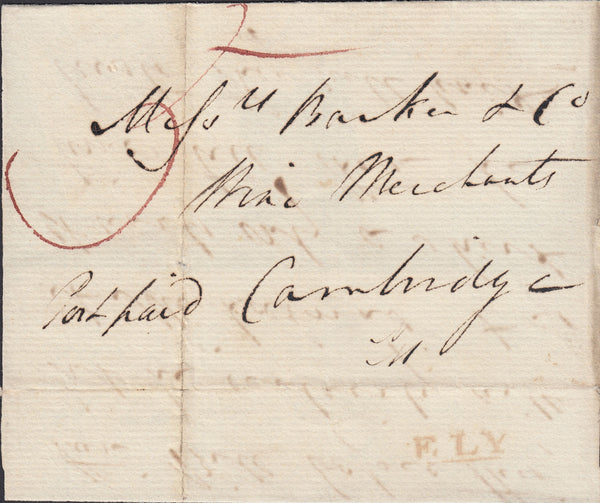 5
Messrs Barker & Co
Wine Merchants
Post paid Cambridge
ELY